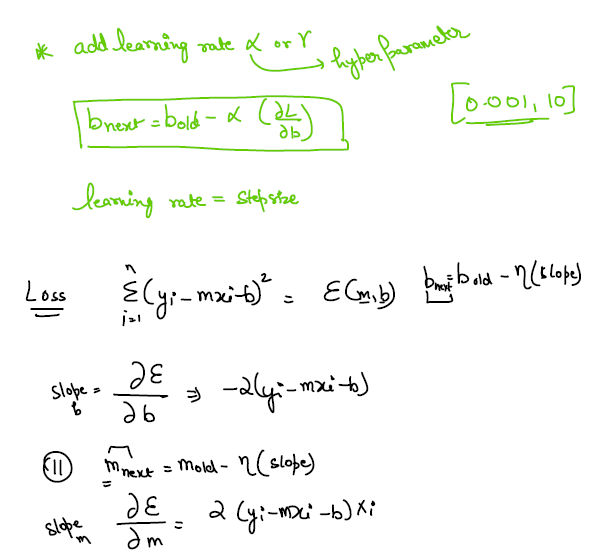 * add learning rate α or γ
→ hyper parameter
b_next = b_old - α (∂L/∂b)
[0.001, 10]
learning rate = stepsize
Loss n Σ i=1 (yi - mxi - b)² = E(m,b) b_next = b_old - η(slope)
slope b = ∂E/∂b ⇒ -2(yi - mxi - b)
(II) m_next = m_old - η(slope)
slope m ∂E/∂m = 2 (yi - mxi - b) xi